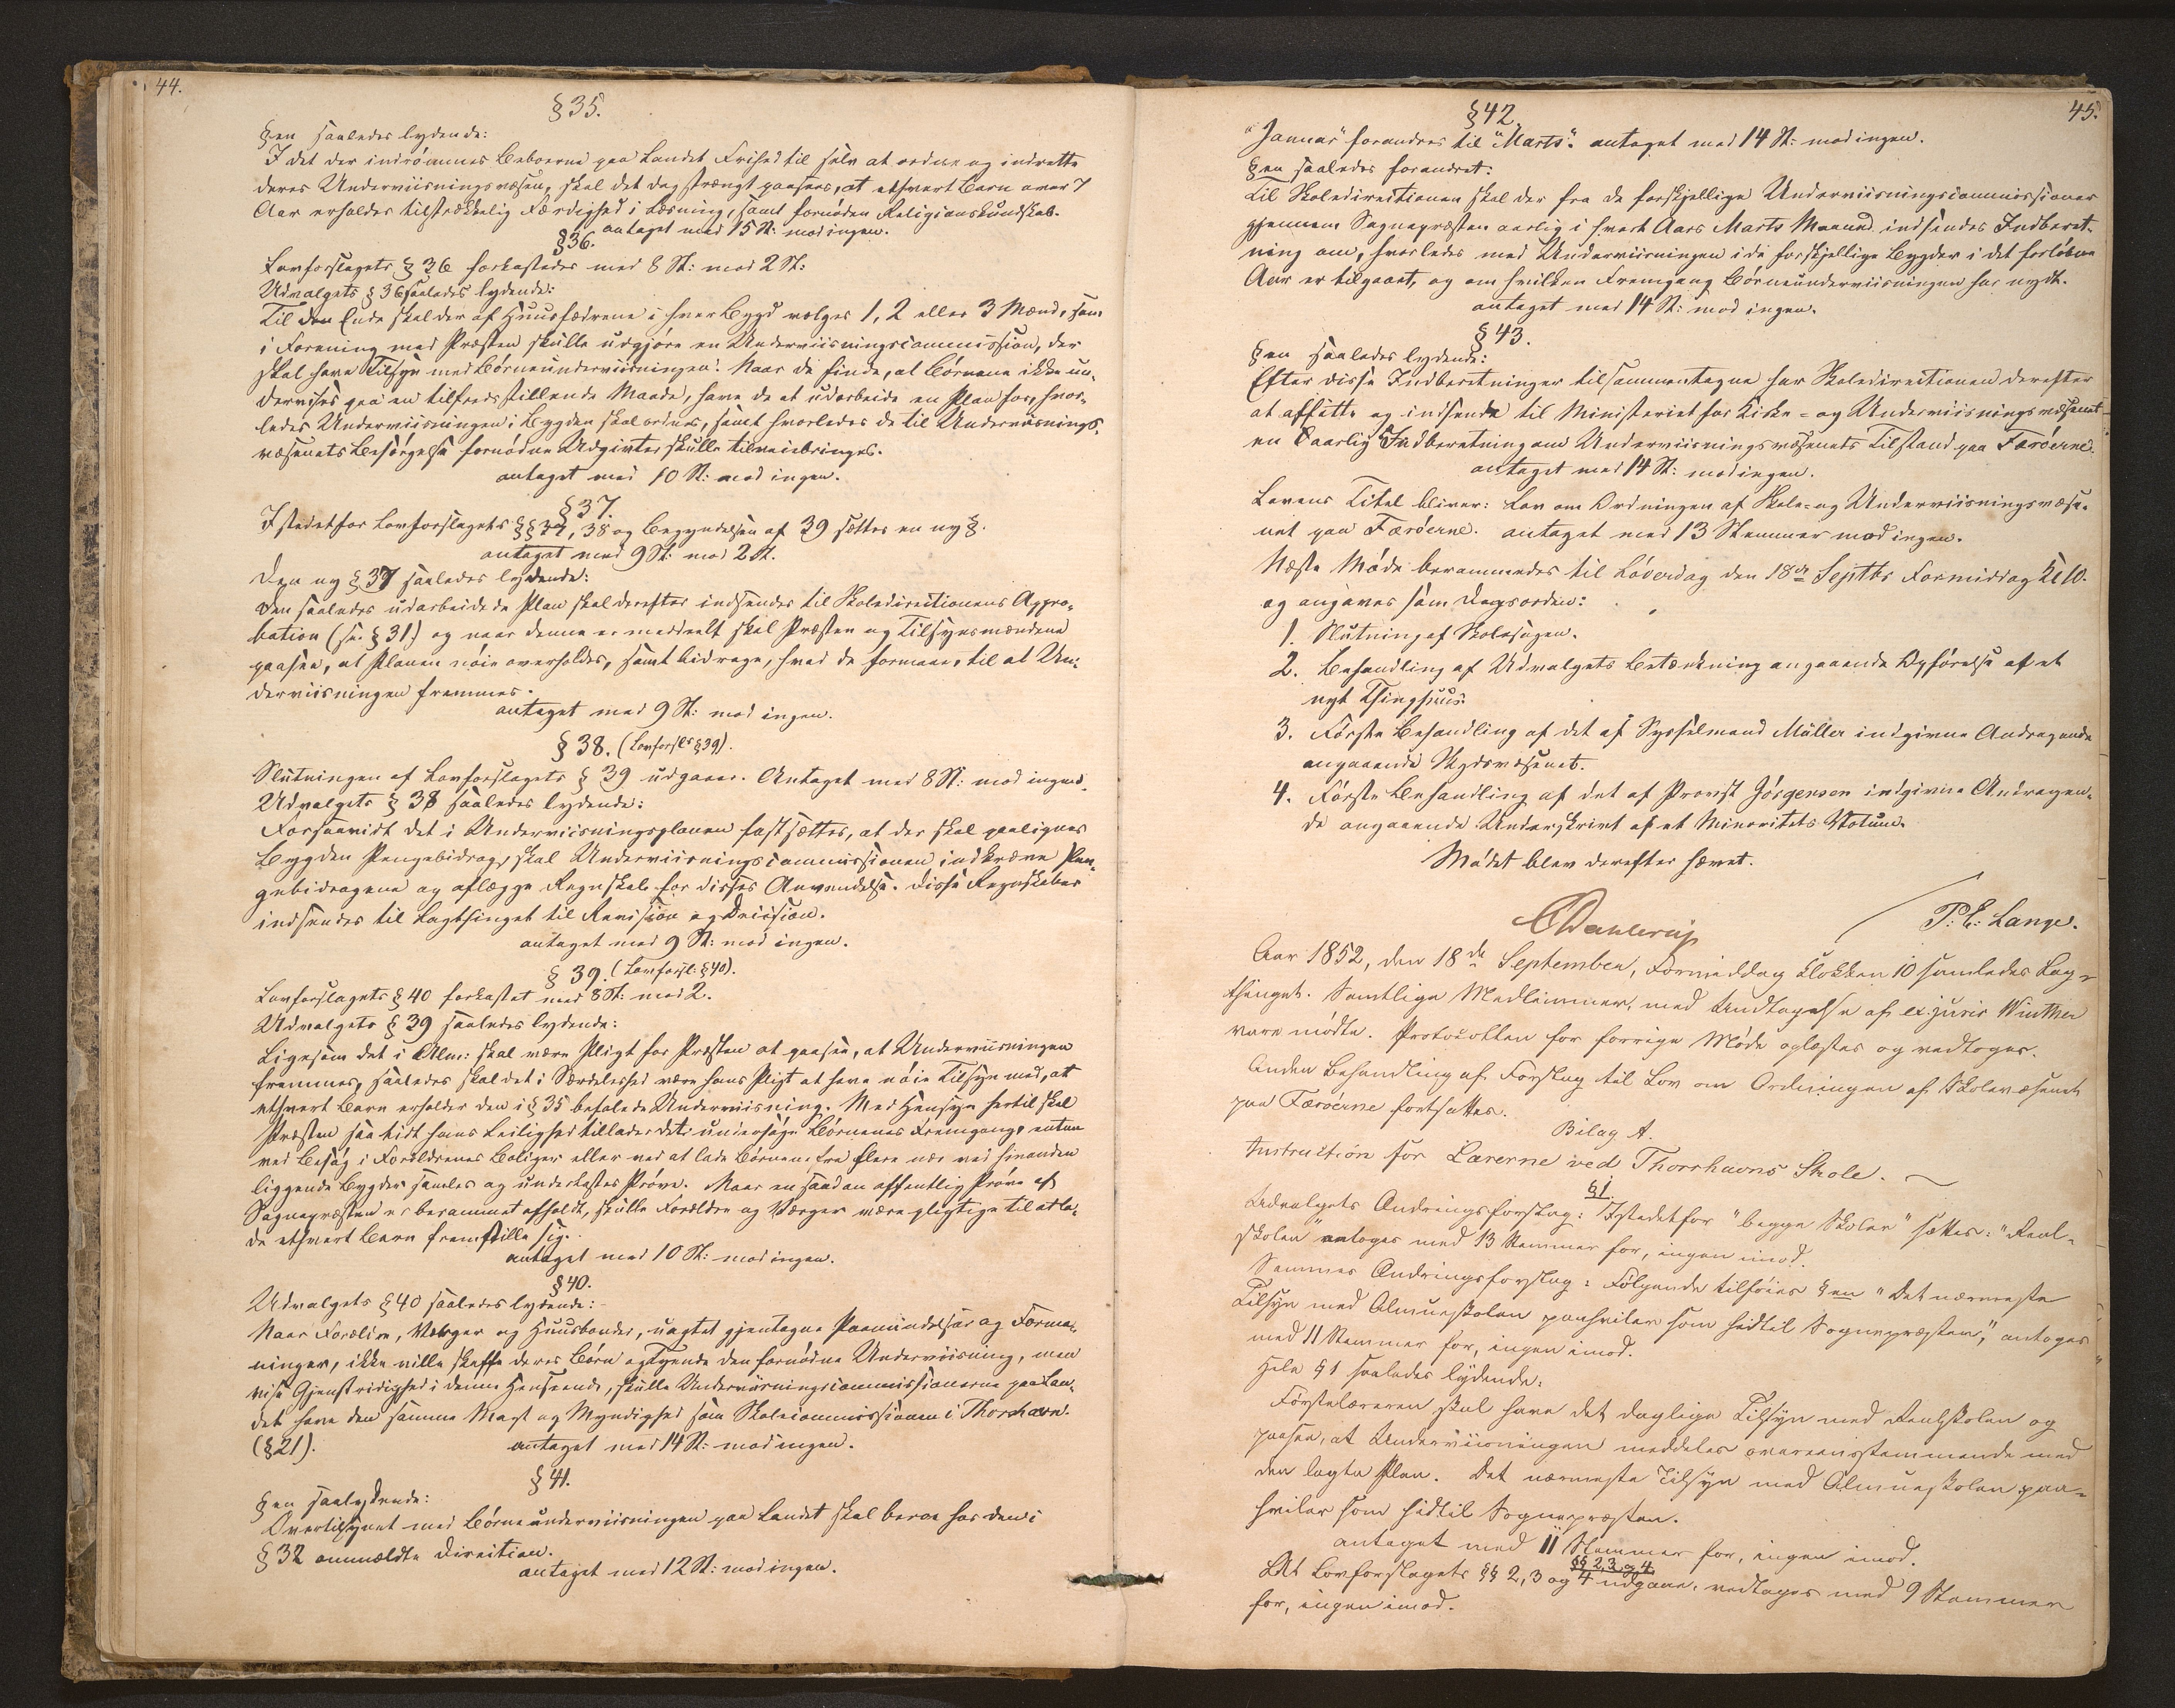 44.
§ 35.
§en saaledes lydende:
I det der indrömmes Beboerne paa Landet Frihed til selv at ordne og indrette
deres Underviisningsvæsen, skal det dog strængt paasees, at ethvert Barn over 7
Aar erholder tilstrækkelig Færdighed i Læsning, samt fornöden Religionskundskab.
antaget med 15 St: mod ingen.
§ 36.
Lovforslagets § 36 forkastedes med 8 St: mod 2 St:
Udvalgets § 36 saaledes lydende:
Til den Ende skal der af Huusfædrene i hver Bygd vælges 1, 2 eller 3 Mænd, som
i Forening med Præsten skulle udgjöre en Underviisningscommission, der
skal have Tilsyn med Börneunderviisningen. Naar de finde, at Börnene ikke un-
dervises paa en tilfredsstillende Maade, have de at udarbeide en Plan for, hvor-
ledes Underviisningen i Bygden skal ordnes, samt hvorledes de til Underviisnings-
væsenets Besörgelse fornödne Udgivter skulle tilveiebringes.
antaget med 10 St: mod ingen.
§ 37.
Istedetfor Lovforslagets §§ 37, 38 og Begyndelsen af 39 sættes en ny §.
antaget med 9 St: mod 2 St.
Den ny § 37 saaledes lydende:
Den saaledes udarbeidede Plan skal derefter indsendes til Skoledirectionens Appro-
bation (se. § 31.) og naar denne er meddeelt skal Præsten og Tilsynsmændene
paasee, at Planen nöie overholdes, samt bidrage, hvad de formaae, til at Un-
derviisningen fremmes.
antaget med 9 St: mod ingen.
§ 38. (Lovforsls § 39).
Slutningen af Lovforslagets § 39 udgaaer. Antaget med 8 St: mod ingen.
Udvalgets § 38 saaledes lydende:
Forsaavidt det i Underviisningsplanen fastsættes, at der skal paalignes
Bygden Pengebidrag, skal Underviisningscommissionen indkræve Pen-
gebidragene og aflægge Regnskab for disses Anvendelse. Disse Regnskaber
indsendes til Lagthinget til Revision og Decision.
antaget med 9 St: mod ingen.
§ 39. (Lovforsl: § 40).
Lovforslagets § 40 forkastet med 8 St: mod 2.
Udvalgets § 39 saaledes lydende:
Ligesom det i Alm: skal være Pligt for Præsten at paasee, at Underviisningen
fremmes, saaledes skal det i Særdeleshed være hans Pligt at have nöie Tilsyn med, at
ethvert Barn erholder den i § 35 befalede Underviisning. Med Hensyn hertil skal
Præsten saa tidt hans Leilighed tillader det undersöge Börnenes Fremgang, enten
ved Besög i Forældrenes Boliger eller ved at lade Börnene fra flere nær ved hinanden
liggende Bygder samles og underkastes Pröve. Naar en saadan offentlig Pröve af
Sognepræsten er berammet afholdt, skulle Forældre og Værger være pligtige til at la-
de ethvert Barn fremstille sig.
antaget med 10 St: mod ingen.
§ 40.
Udvalgets § 40 saaledes lydende:
Naar Forældre, Værger og Huusbonder, uagtet gjentagne Paamindelser og Forma-
ninger, ikke ville skaffe deres Börn og Tyende den fornödne Underviisning, men
vise Gjenstridighed i denne Henseende, skulle Underviisningscommissionerne paa Lan-
det have den samme Magt og Myndighed som Skolecommissionen i Thorshavn.
(§ 21). antaget med 14 St: mod ingen.
§ 41.
§en saalydende:
Overtilsynet med Börneunderviisningen paa Landet skal beroe hos den i
§ 32 ommeldte Direction.
antaget med 12 St: mod ingen.
45.
§ 42.
"Januar" forandres til "Marts". antaget med 14 St: mod ingen.
§en saaledes forandret:
Til Skoledirectionen skal der fra de forskjellige Underviisningscommissioner
gjennem Sognepræsten aarlig i hvert Aars Marts Maaned indsendes Indberet-
ning om, hvorledes med Underviisningen i de forskjellige Bygder i det forlöbne
Aar er tilgaaet, og om hvilken Fremgang Börneunderviisningen har nydt.
antaget med 14 St: mod ingen.
§ 43.
§en saaledes lydende:
Efter disse Indberetninger tilsammentagne har Skoledirectionen derefter
at affatte og indsende til Ministeriet for Kirke- og Underviisningsvæsenet
en aarlig Indberetning om Underviisningsvæsenets Tilstand paa Færöerne.
antaget med 14 St: mod ingen.
Lovens Titel bliver: Lov om Ordningen af Skole- og Underviisningsvæse-
net paa Færöerne. antaget med 13 Stemmer mod ingen.
Næste Möde berammedes til Löverdag den 18de Septbr Formiddag Kl 10.
og angaves som Dagsorden:
1. Slutning af Skolesagen.
2. Behandling af Udvalgets Betænkning angaaende Opförelse af et
nyt Thinghuus.
3. Förste Behandling af det af Sysselmand Müller indgivne Andragende
angaaende Skydsvæsenet.
4. Förste Behandling af det af Provst Jörgensen indgivne Andragen-
de angaaende Underskrivt af et Minoritets Votum.
Mödet blev derefter hævet.
CDahlerup
P: E: Lange.
Aar 1852, den 18de September, Formiddag Klokken 10 samledes Lag-
thinget. Samtlige Medlemmer, med Undtagelse af ex: juris Winther
vare mödte. Protocollen for forrige Möde oplæstes og vedtoges.
Anden Behandling af Forslag til Lov om Ordningen af Skolevæsenet
paa Færöerne fortsattes.
Bilag A.
Instruction for Lærerne ved Thorshavns Skole.
§ 1.
Udvalgets Ændringsforslag: Istedetfor "begge Skoler" sættes: "Real-
skolen" antoges med 13 Stemmer for, ingen imod.
Sammes Ændringsforslag: Fölgende tilföies §en "Det nærmeste
Tilsyn med Almueskolen paahviler som hidtil Sognepræsten", antoges
med 11 Stemmer for, ingen imod.
Hele § 1 saaledes lydende:
Förstelæreren skal have det daglige Tilsyn med Realskolen og
paasee, at Underviisningen meddeles overeensstemmende med
den lagte Plan. Det nærmeste Tilsyn med Almueskolen paa-
hviler som hidtil Sognepræsten.
antaget med 11 Stemmer for, ingen imod.
§§ 2, 3 og 4.
At Lovforslagets §§ 2, 3 og 4 udgaae, vedtoges med 9 Stemmer
for, ingen imod.